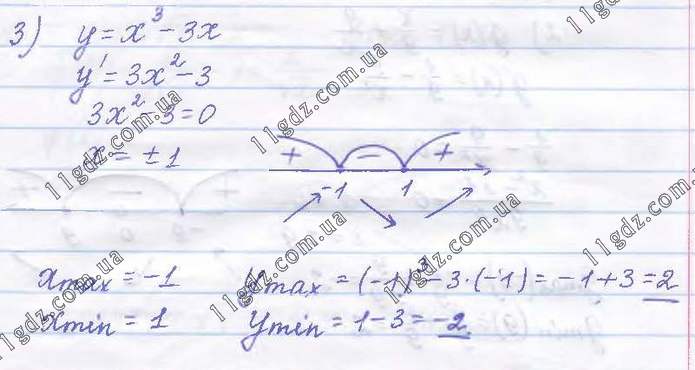 3) y = x³ - 3x
y' = 3x² - 3
3x² - 3 = 0
x = ± 1
+ - +
-1 1
xmax = -1 ymax = (-1)³ - 3·(-1) = -1 + 3 = 2
xmin = 1 ymin = 1 - 3 = -2
11gdz.com.ua
11gdz.com.ua
11gdz.com.ua
11gdz.com.ua
11gdz.com.ua
11gdz.com.ua
11gdz.com.ua
11gdz.com.ua